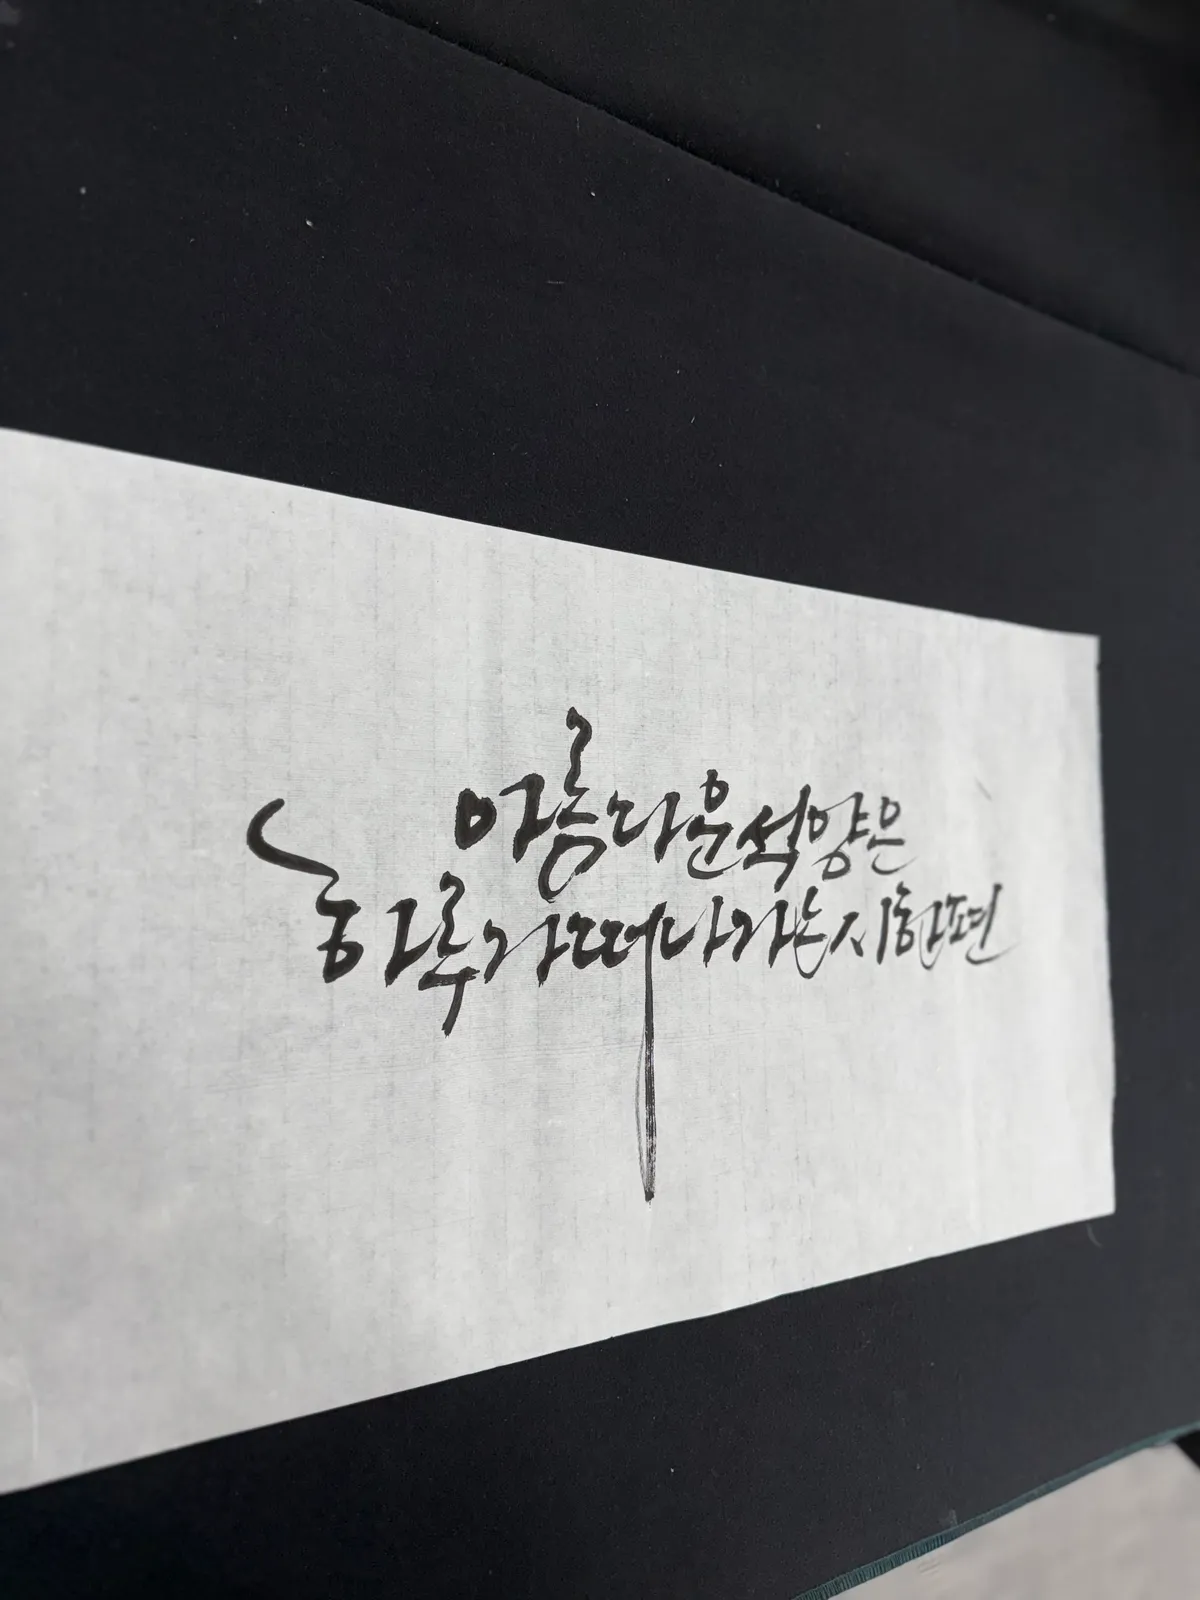 아름다운 석양은
하루가 떠나가는 시 한 편